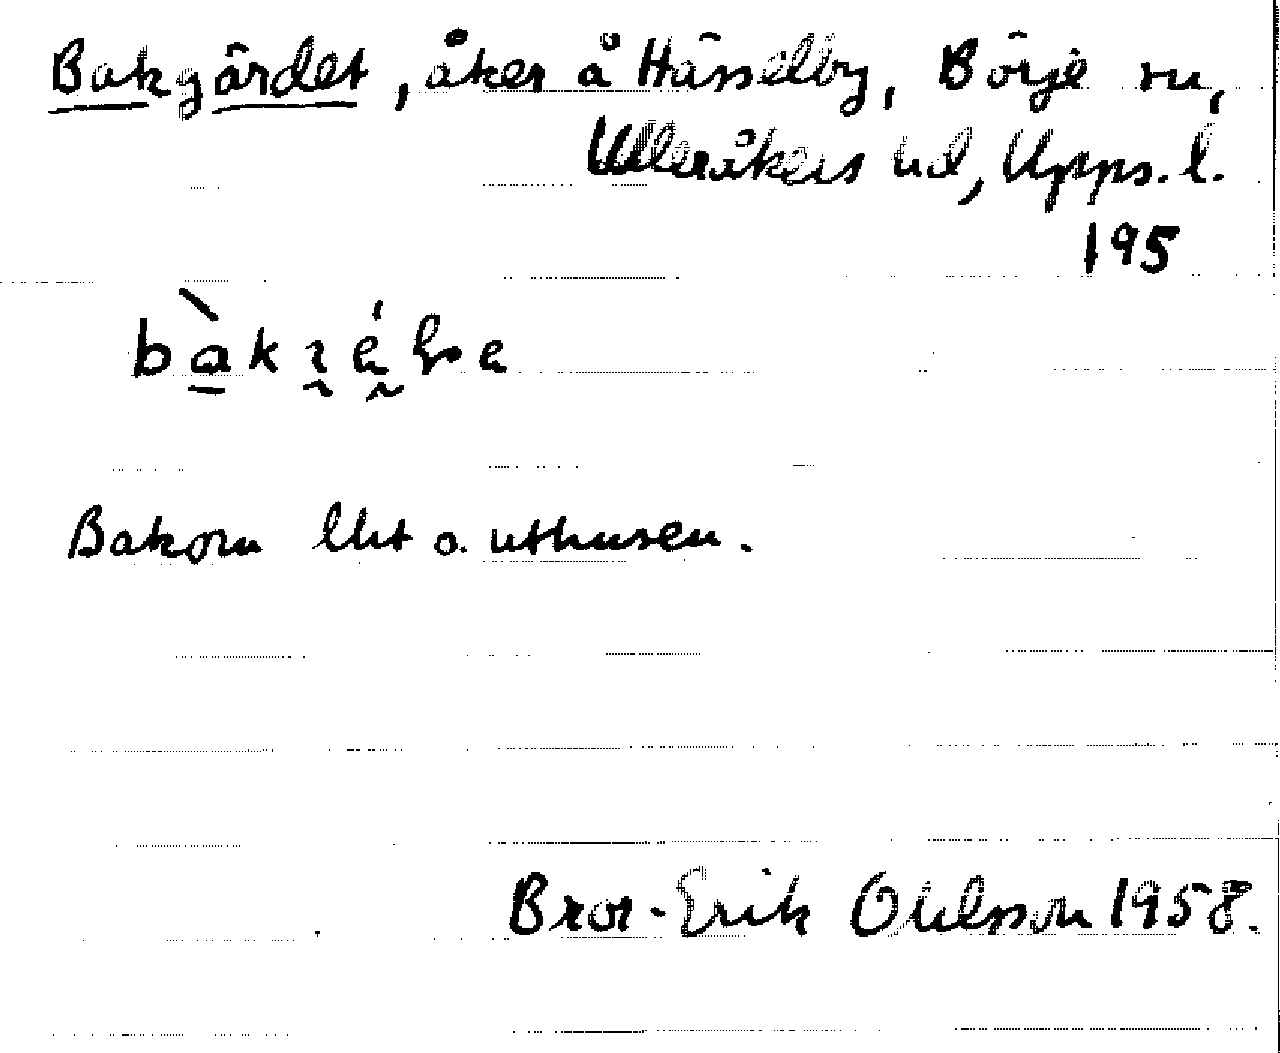 Bakgärdet, åker å Hässelby, Börje sn,
Ulleråkers hd, Upps. l.
195
Bakom lht o. uthusen.
Bror-Erik Ohlsson 1958.